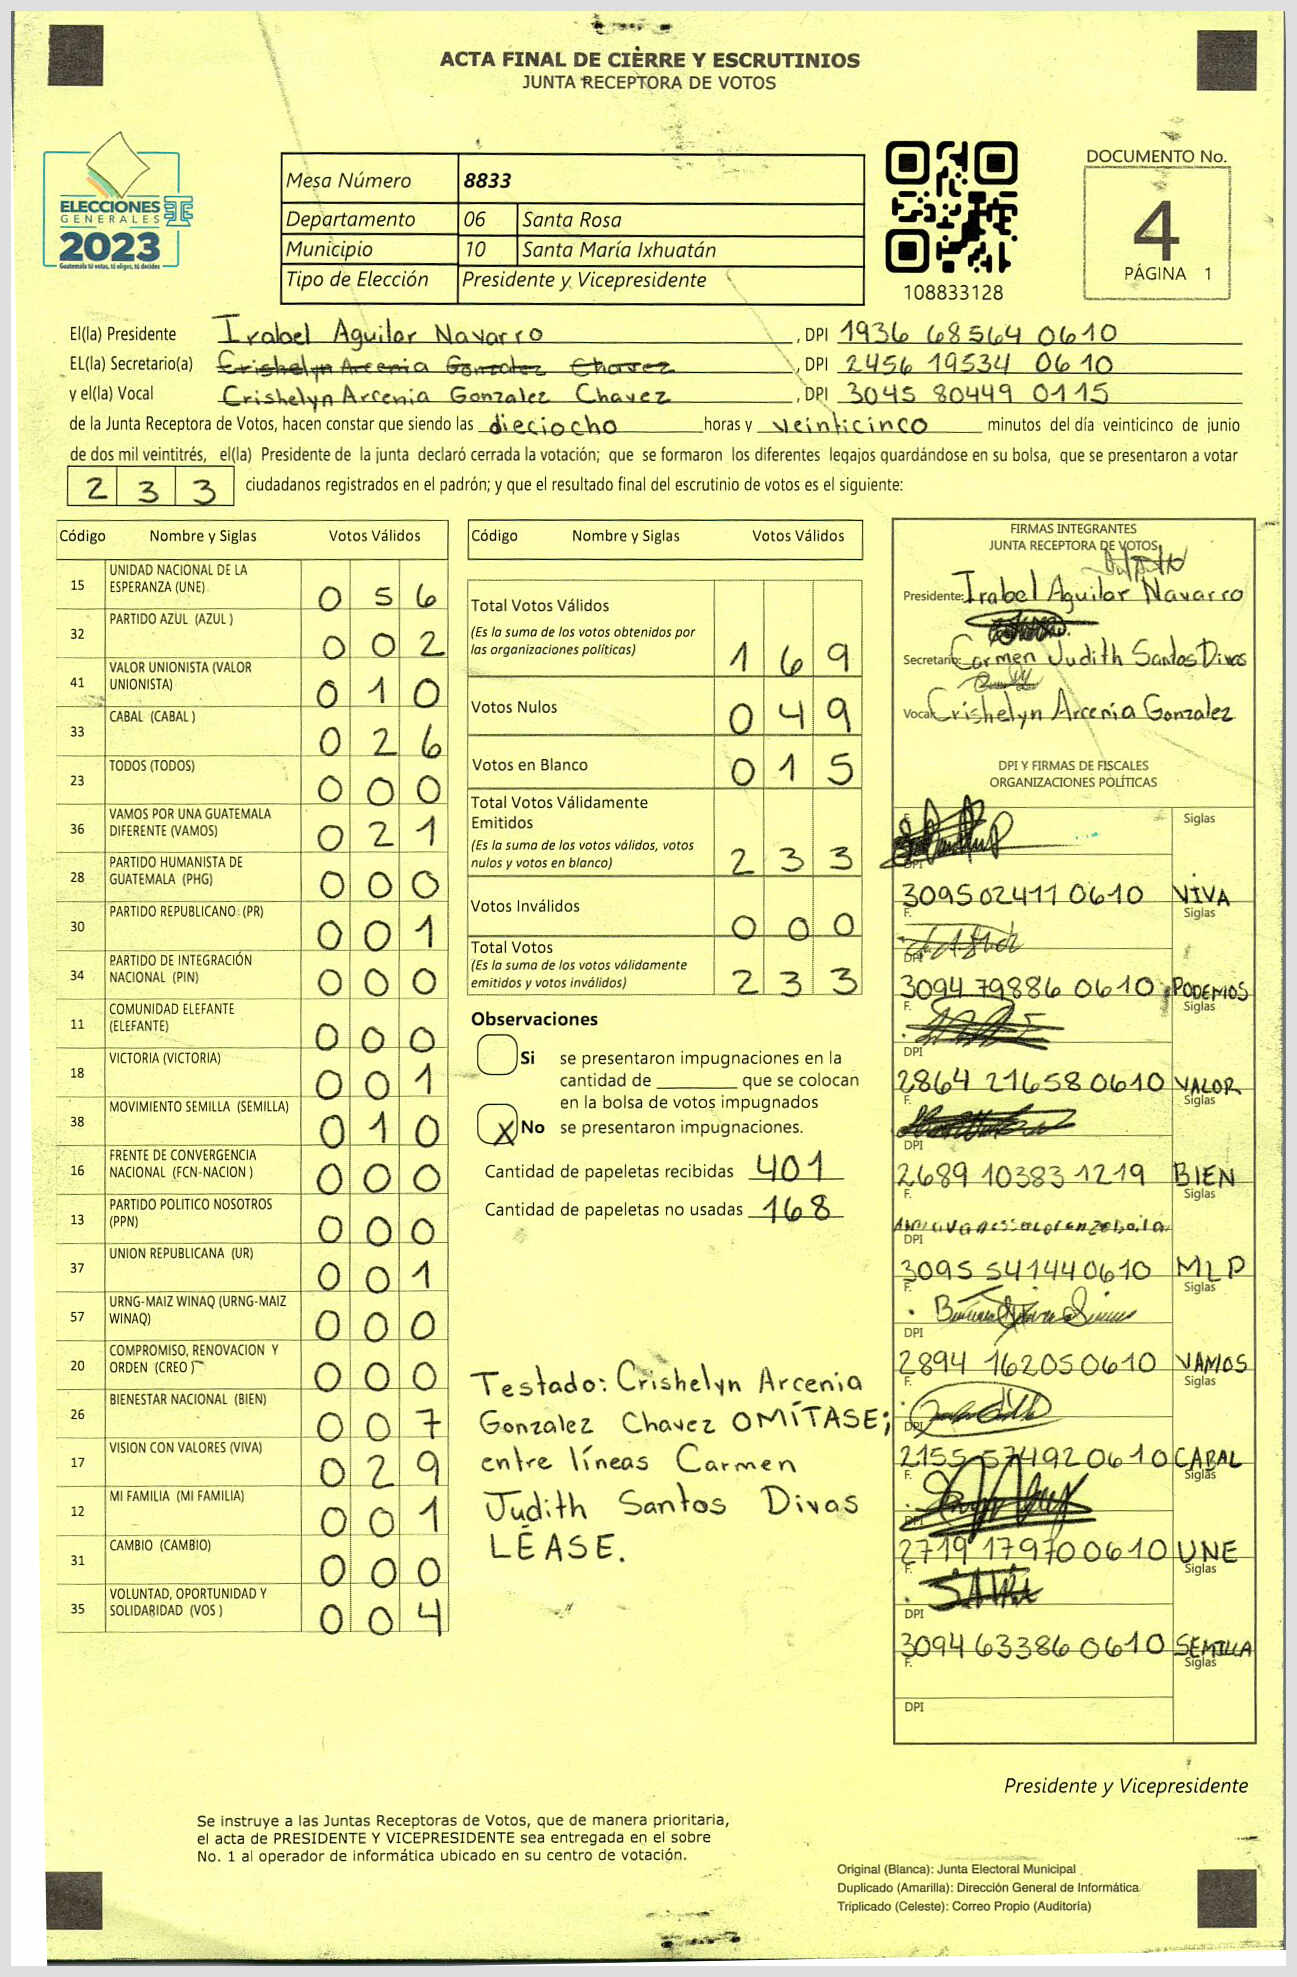 ACTA FINAL DE CIERRE Y ESCRUTINIOS
JUNTA RECEPTORA DE VOTOS
ELECCIONES
GENERALES
2023
Guatemala tú votas, tú eliges, tú decides
Mesa Número 8833
Departamento 06 Santa Rosa
Municipio 10 Santa María Ixhuatán
Tipo de Elección Presidente y Vicepresidente
108833128
DOCUMENTO No.
4
PÁGINA 1
El(la) Presidente Irabel Aguilar Navarro, DPI 1936 68564 0610
EL(la) Secretario(a) Crishelyn Arcenia Gonzalez Chavez, DPI 2456 19534 0610
y el(la) Vocal Crishelyn Arcenia Gonzalez Chavez, DPI 3045 80449 0115
de la Junta Receptora de Votos, hacen constar que siendo las dieciocho horas y veinticinco minutos del día veinticinco de junio
de dos mil veintitrés, el(la) Presidente de la junta declaró cerrada la votación; que se formaron los diferentes legajos guardándose en su bolsa, que se presentaron a votar
233 ciudadanos registrados en el padrón; y que el resultado final del escrutinio de votos es el siguiente:
Código Nombre y Siglas Votos Válidos
15 UNIDAD NACIONAL DE LA ESPERANZA (UNE) 056
32 PARTIDO AZUL (AZUL ) 002
41 VALOR UNIONISTA (VALOR UNIONISTA) 010
33 CABAL (CABAL ) 026
23 TODOS (TODOS) 000
36 VAMOS POR UNA GUATEMALA DIFERENTE (VAMOS) 021
28 PARTIDO HUMANISTA DE GUATEMALA (PHG) 000
30 PARTIDO REPUBLICANO (PR) 001
34 PARTIDO DE INTEGRACIÓN NACIONAL (PIN) 000
11 COMUNIDAD ELEFANTE (ELEFANTE) 000
18 VICTORIA (VICTORIA) 001
38 MOVIMIENTO SEMILLA (SEMILLA) 010
16 FRENTE DE CONVERGENCIA NACIONAL (FCN-NACION ) 000
13 PARTIDO POLITICO NOSOTROS (PPN) 000
37 UNION REPUBLICANA (UR) 001
57 URNG-MAIZ WINAQ (URNG-MAIZ WINAQ) 000
20 COMPROMISO, RENOVACION Y ORDEN (CREO ) 000
26 BIENESTAR NACIONAL (BIEN) 007
17 VISION CON VALORES (VIVA) 029
12 MI FAMILIA (MI FAMILIA) 001
31 CAMBIO (CAMBIO) 000
35 VOLUNTAD, OPORTUNIDAD Y SOLIDARIDAD (VOS ) 004
Código Nombre y Siglas Votos Válidos
Total Votos Válidos
(Es la suma de los votos obtenidos por
las organizaciones políticas) 169
Votos Nulos 049
Votos en Blanco 015
Total Votos Válidamente
Emitidos
(Es la suma de los votos válidos, votos
nulos y votos en blanco) 233
Votos Inválidos 000
Total Votos
(Es la suma de los votos válidamente
emitidos y votos inválidos) 233
Observaciones
Si se presentaron impugnaciones en la
cantidad de ________ que se colocan
en la bolsa de votos impugnados
X No se presentaron impugnaciones.
Cantidad de papeletas recibidas 401
Cantidad de papeletas no usadas 168
Testado: Crishelyn Arcenia
Gonzalez Chavez OMÍTASE;
entre líneas Carmen
Judith Santos Divas
LÉASE.
FIRMAS INTEGRANTES
JUNTA RECEPTORA DE VOTOS
Presidente: Irabel Aguilar Navarro
Secretario: Carmen Judith Santos Divas
Vocal: Crishelyn Arcenia Gonzalez
DPI Y FIRMAS DE FISCALES
ORGANIZACIONES POLÍTICAS
F. Siglas
DPI 3095 02411 0610 VIVA
F. Siglas
DPI 3094 79886 0610 PODEMOS
F. Siglas
DPI 2864 21658 0610 VALOR
F. Siglas
DPI 2689 10383 1219 BIEN
F. Siglas
DPI 3095 54144 0610 MLP
F. Siglas
DPI 2894 16205 0610 VAMOS
F. Siglas
DPI 2155 57492 0610 CABAL
F. Siglas
DPI 2719 17970 0610 UNE
F. Siglas
DPI 3094 63386 0610 SEMILLA
F. Siglas
DPI
Presidente y Vicepresidente
Se instruye a las Juntas Receptoras de Votos, que de manera prioritaria,
el acta de PRESIDENTE Y VICEPRESIDENTE sea entregada en el sobre
No. 1 al operador de informática ubicado en su centro de votación.
Original (Blanca): Junta Electoral Municipal
Duplicado (Amarilla): Dirección General de Informática
Triplicado (Celeste): Correo Propio (Auditoría)